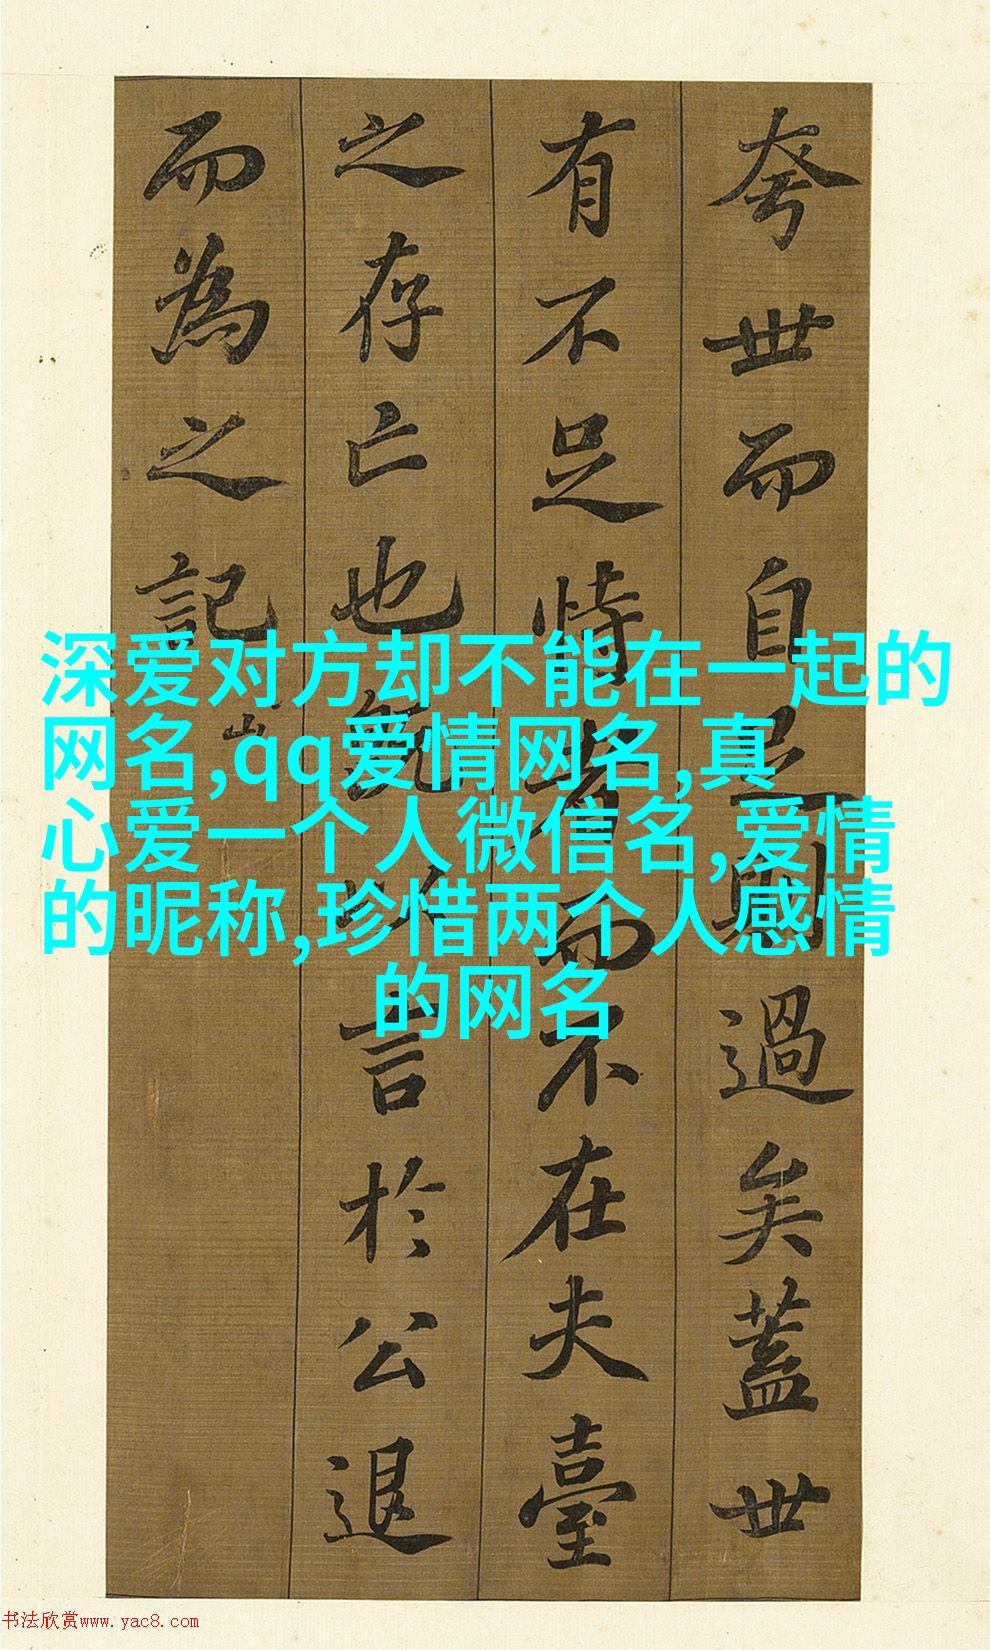 夸世而自足則過矣蓋世
有不足恃者而不在夫臺
之存亡也既以言於公退
而為之記
深爱对方却不能在一起的
网名,qq爱情网名,真
心爱一个人微信名,爱情
的昵称,珍惜两个人感情
的网名
书法欣赏www.yac8.com